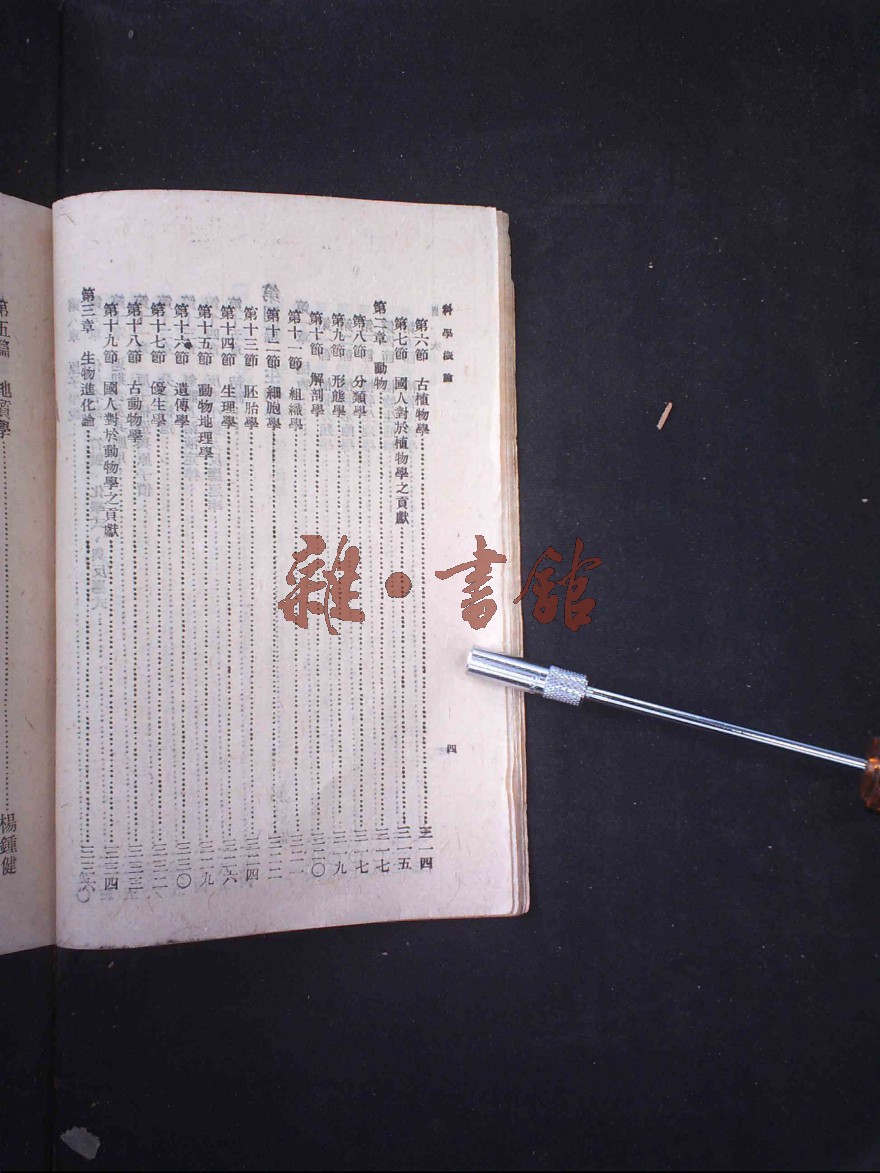 科學概論
四
第六節 古植物學 三一四
第七節 國人對於植物學之貢獻 三一五
第二章 動物 三一七
第八節 分類學 三一七
第九節 形態學 三一九
第十節 解剖學 三二〇
第十一節 組織學
第十二節 細胞學
第十三節 胚胎學 三二四
第十四節 生理學 三二六
第十五節 動物地理學 三二九
第十六節 遺傳學 三三〇
第十七節 優生學
第十八節 古動物學
第十九節 國人對於動物學之貢獻 三三四
第三章 生物進化論
第五篇 地質學 楊鍾健
雜·書館